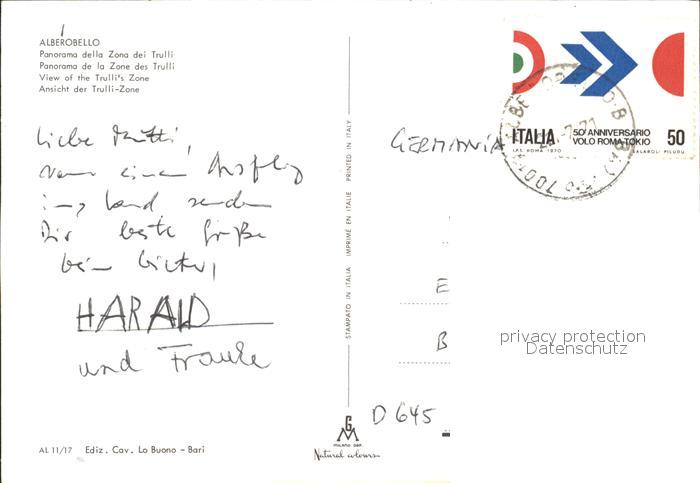 ALBEROBELLO
Panorama della Zona dei Trulli
Panorama de la Zone des Trulli
View of the Trulli's Zone
Ansicht der Trulli-Zone
Liebe Mutti,
vom einem Ausflug
ins Land senden
Dir beste Grüße
HARALD
und Frauke
AL 11/17 Ediz. Cav. Lo Buono - Bari
STAMPATO IN ITALIA IMPRIMÉ EN ITALIE PRINTED IN ITALY
GM
MILANO DEP.
Natural colours
GERMANIA
ITALIA 50° ANNIVERSARIO
VOLO ROMA-TOKIO 50
I.P.S. ROMA 1970 SALAROLI PILUDU
E
B
D 645
privacy protection
Datenschutz